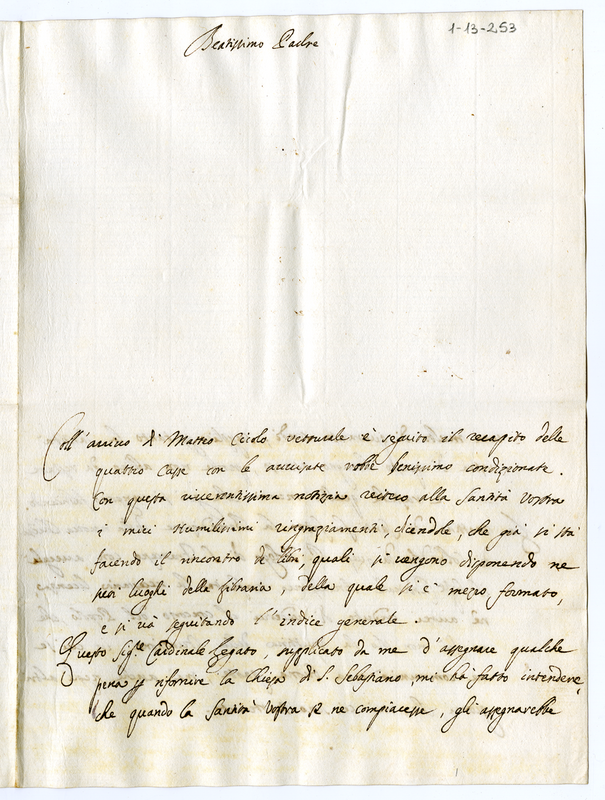 1-13-253
Beatissimo Padre
Coll'arrivo di Matteo Ceolo vetturale è seguito il recapito delle
quattro casse con le avvisate robbe benissimo condizionate.
Con questa riverentissima notizia reitero alla Santità Vostra
i miei umilissimi ringraziamenti, dicendole, che già si stà
facendo il rincontro de libri, quali si vengono disponendo ne
suoi luoghi della libraria, della quale si è mezzo formato,
e si và seguitando l'indice generale.
Questo Sig.r Cardinale Legato, supplicato da me d'assegnare qualche
pena p rifornire la Chiesa di S. Sebastiano, mi hà fatto intendere,
che quando la Santità Vostra se ne compiacesse, gli assegnarebbe